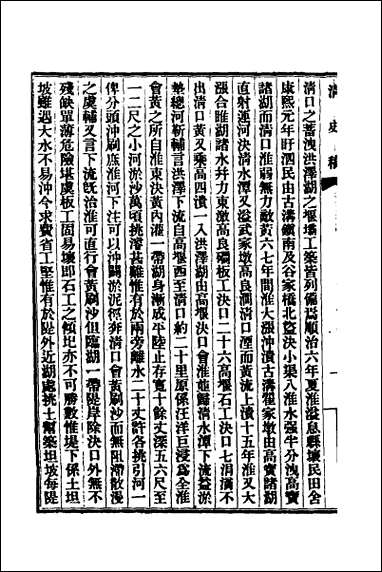 清史稿
清口之蓄洩洪澤湖之堰壩工築皆列備焉順治六年夏淮溢息縣壞民田舍
康熙元年盱泗民由古溝鎮南及谷家橋北盜決小渠八淮水强半分洩高寶
諸湖而清口淮弱無力敵黃六七年間淮大漲沖潰古溝翟家墩由高寶諸湖
直射運河決清水潭又溢武家墩高良澗清口湮而黃流上潰十五年淮又大
漲合睢湖諸水幷力東激高良澗板工決口二十六高堰石工決口七涓滴不
出清口黃又乘高四潰一入洪澤湖由高堰決口會淮並歸清水潭下流益淤
墊總河靳輔言洪澤下流自高堰西至清口約二十里原係汪洋巨浸爲全淮
會黃之所自淮東決黃內灌一帶湖身漸成平陸止存寬十餘丈深五六尺至
一二尺之小河淤沙萬頃挑濬甚難惟有於兩旁離水二十丈許各挑引河一
俾分頭沖刷庶淮河下注可以沖闢淤泥徑奔清口會黃刷沙而無阻滯散漫
之虞輔又言下流旣治淮可直行會黃刷沙但臨湖一帶隄岸除決口外無不
殘缺單薄危險堪虞板工固易壞卽石工之傾圮亦不可勝數惟堤下係土坦
坡雖遇大水不易沖今求費省工堅惟有於隄外近湖處挑土幫築坦坡每隄